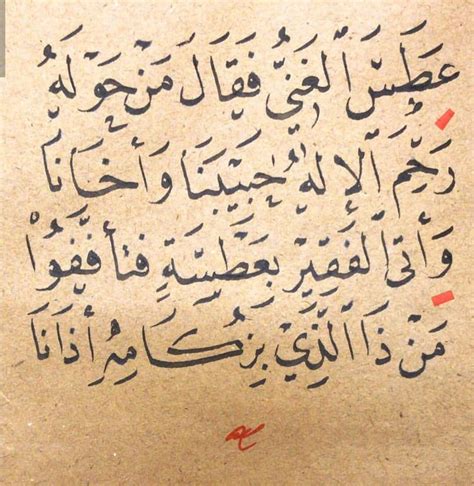 عَطَسَ الغَنِيُّ فَقَالَ مَنْ حَوْلَهُ
رَحِمَ الإِلهُ حَبِيبَنَا وَأَخَانَا
وَأَتَى الفَقِيرُ بِعَطْسَةٍ فَتَأَفَّفُوا
مَنْ ذَا الَّذِي بِزُكَامِهِ أَذَانَا